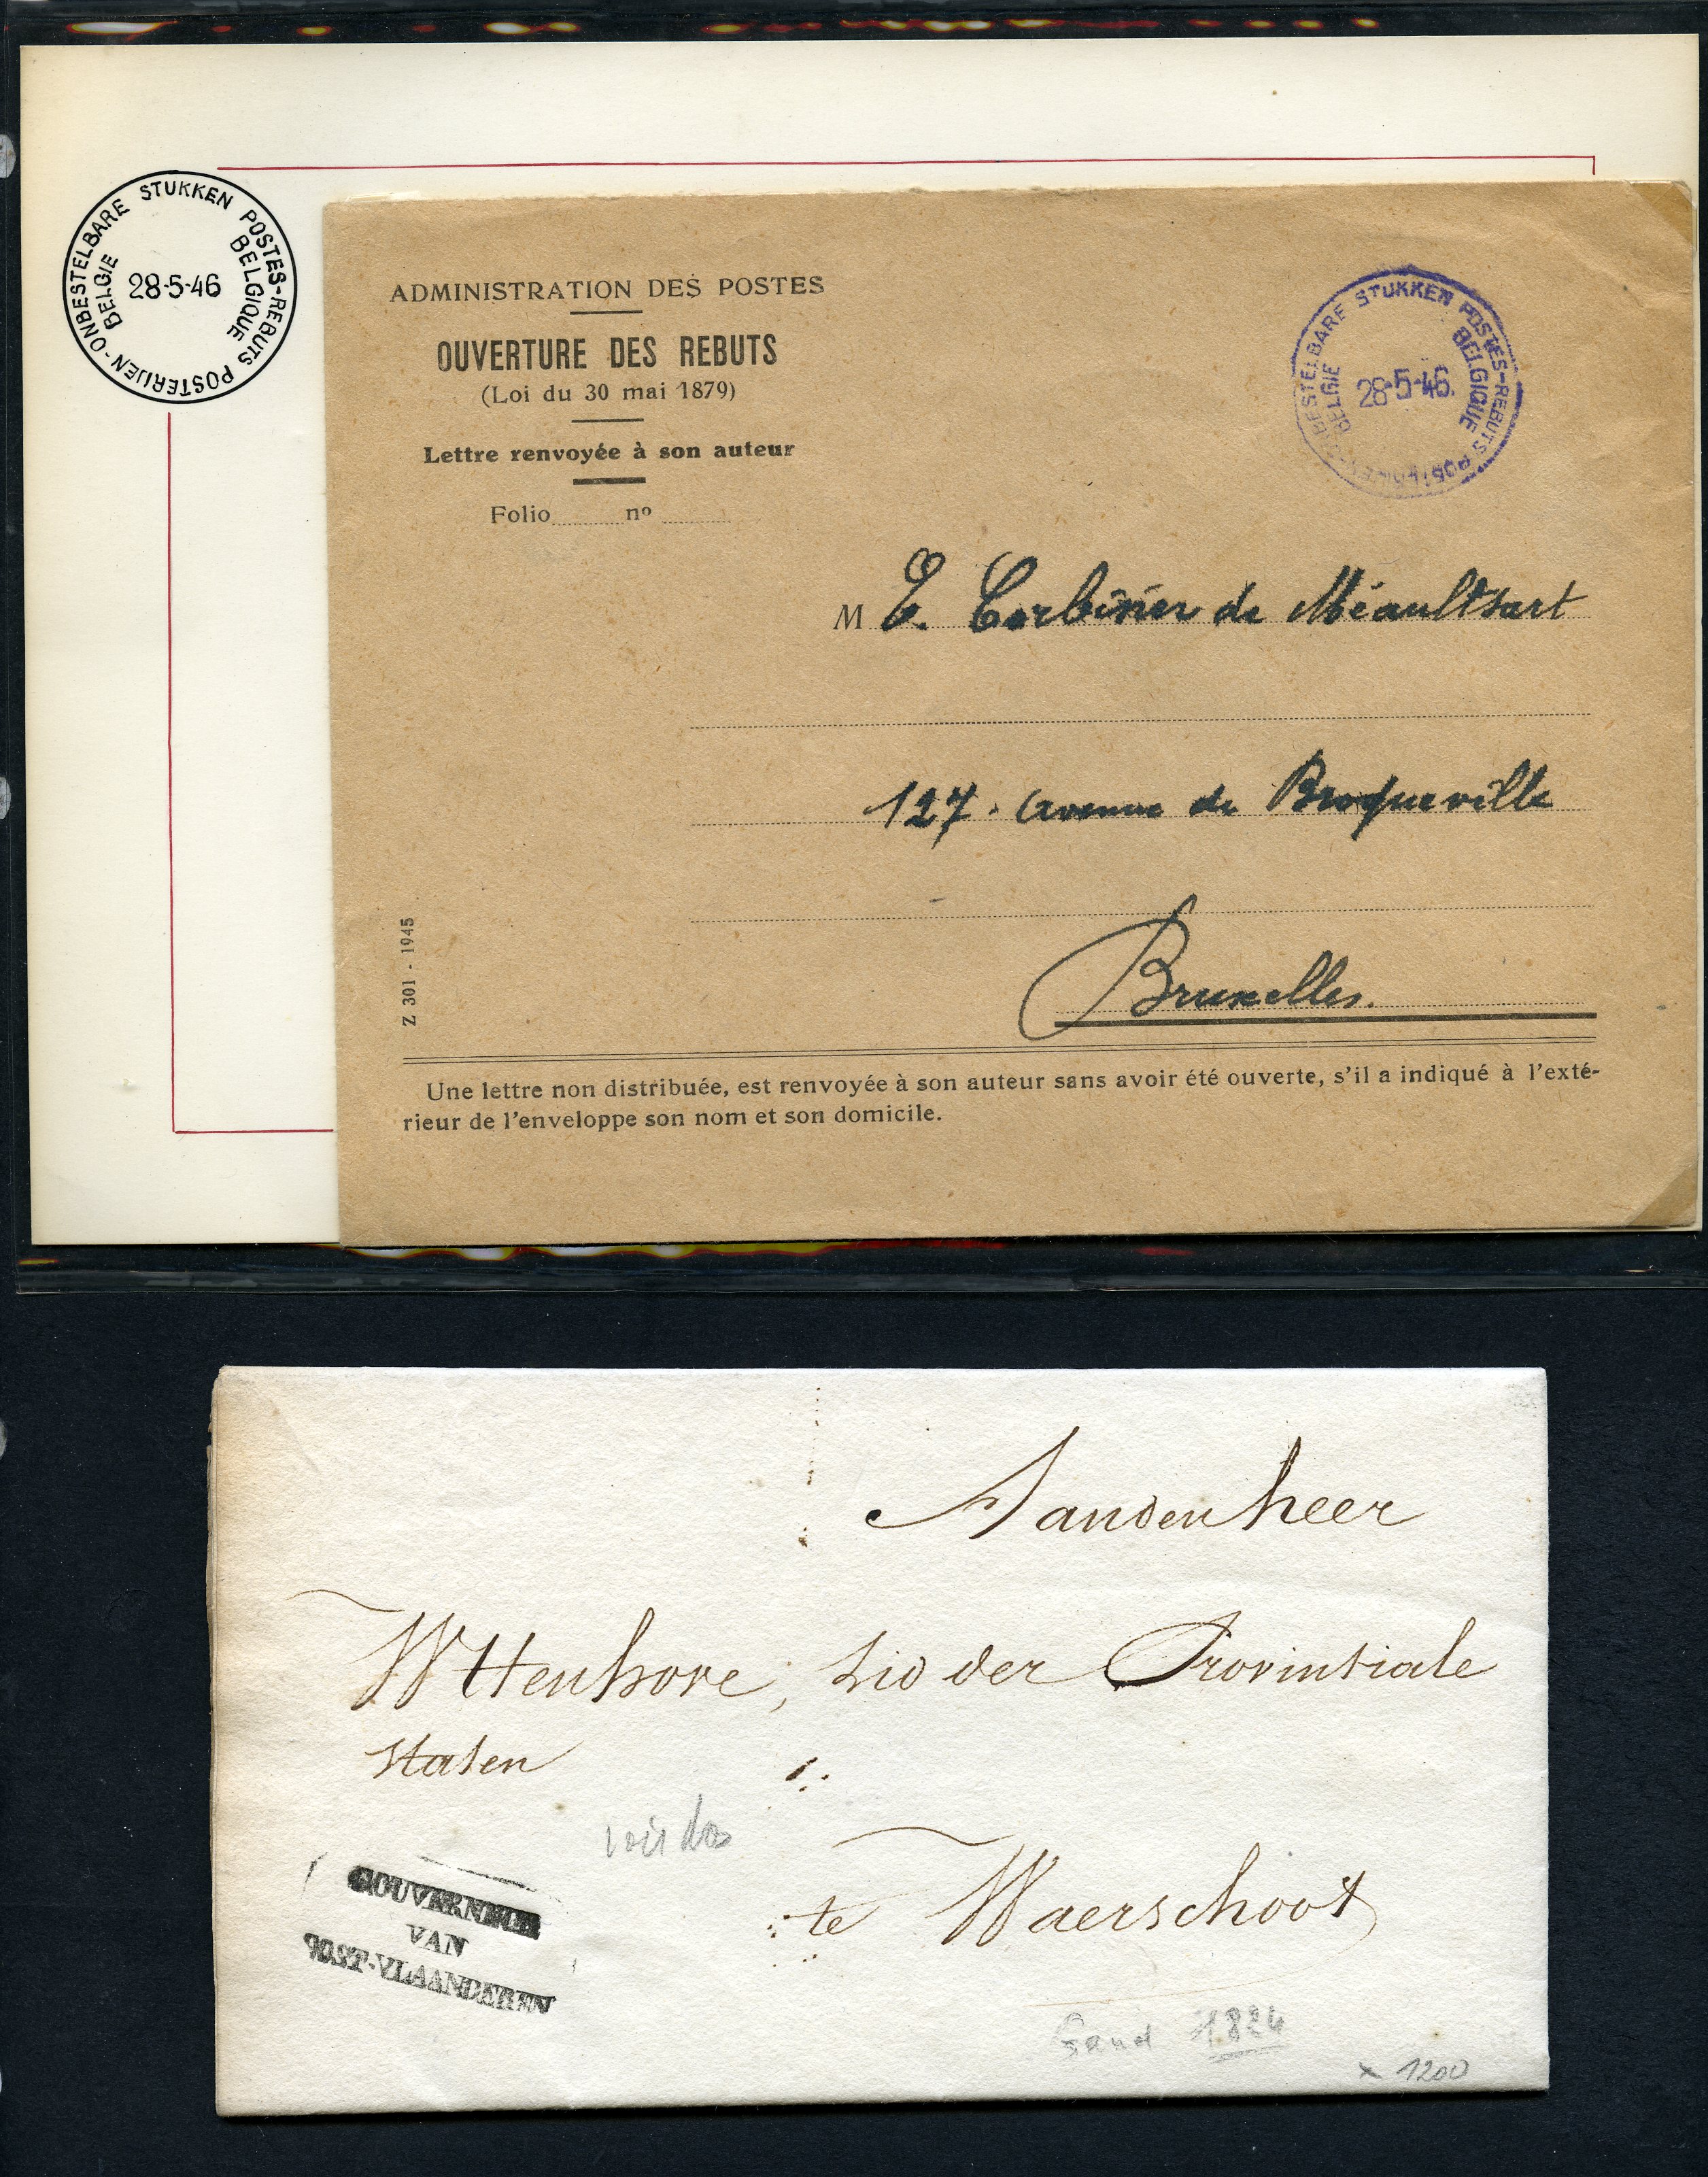 ONBESTELBARE STUKKEN POSTES-REBUTS POSTERIJEN-
BELGIE 28-5-46 BELGIQUE
ADMINISTRATION DES POSTES
OUVERTURE DES REBUTS
(Loi du 30 mai 1879)
Lettre renvoyée à son auteur
Folio nº
STUKKEN POSTES-REBUTS
BELGIE 28-5-46. BELGIQUE
M E. Corbisier de Méaultsart
127. Avenue de Broqueville
Bruxelles.
Z 301 - 1945
Une lettre non distribuée, est renvoyée à son auteur sans avoir été ouverte, s'il a indiqué à l'exté-
rieur de l'enveloppe son nom et son domicile.
Aan den heer
Wttenhove, Lid der Provintiale
Staten
voir dos
GOUVERNEUR
VAN
OOST-VLAANDEREN
te Waerschoot
Gand 1824
x 1200